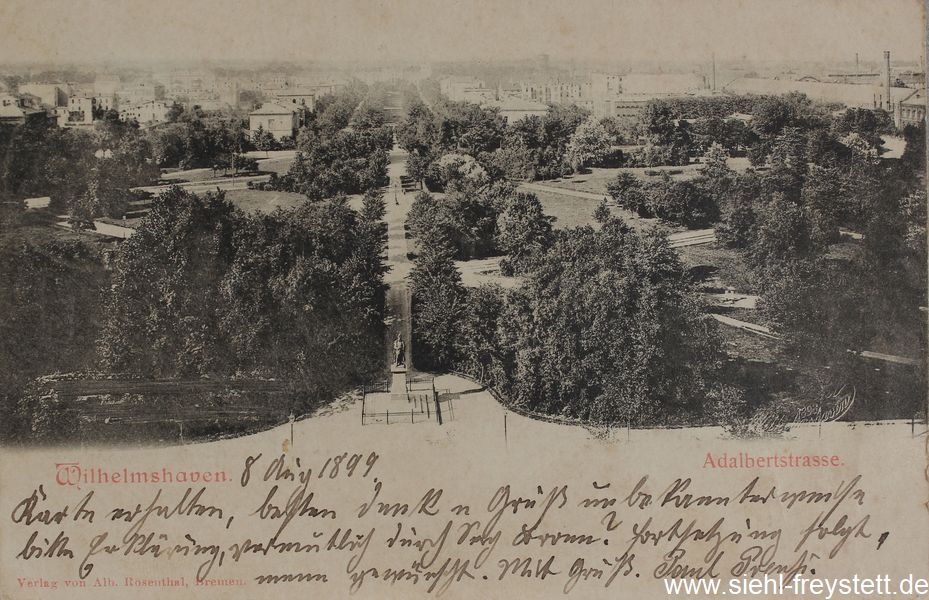 Wilhelmshaven. 8 Aug 1899
Adalbertstrasse.
Karte erhalten, besten Dank u Gruß unbekannterweise
bitte Erklärung, vermutlich durch ? Fortsetzung folgt,
wenn gewünscht. Mit Gruß. Paul
Verlag von Alb. Rosenthal, Bremen.
www.siehl-freystett.de